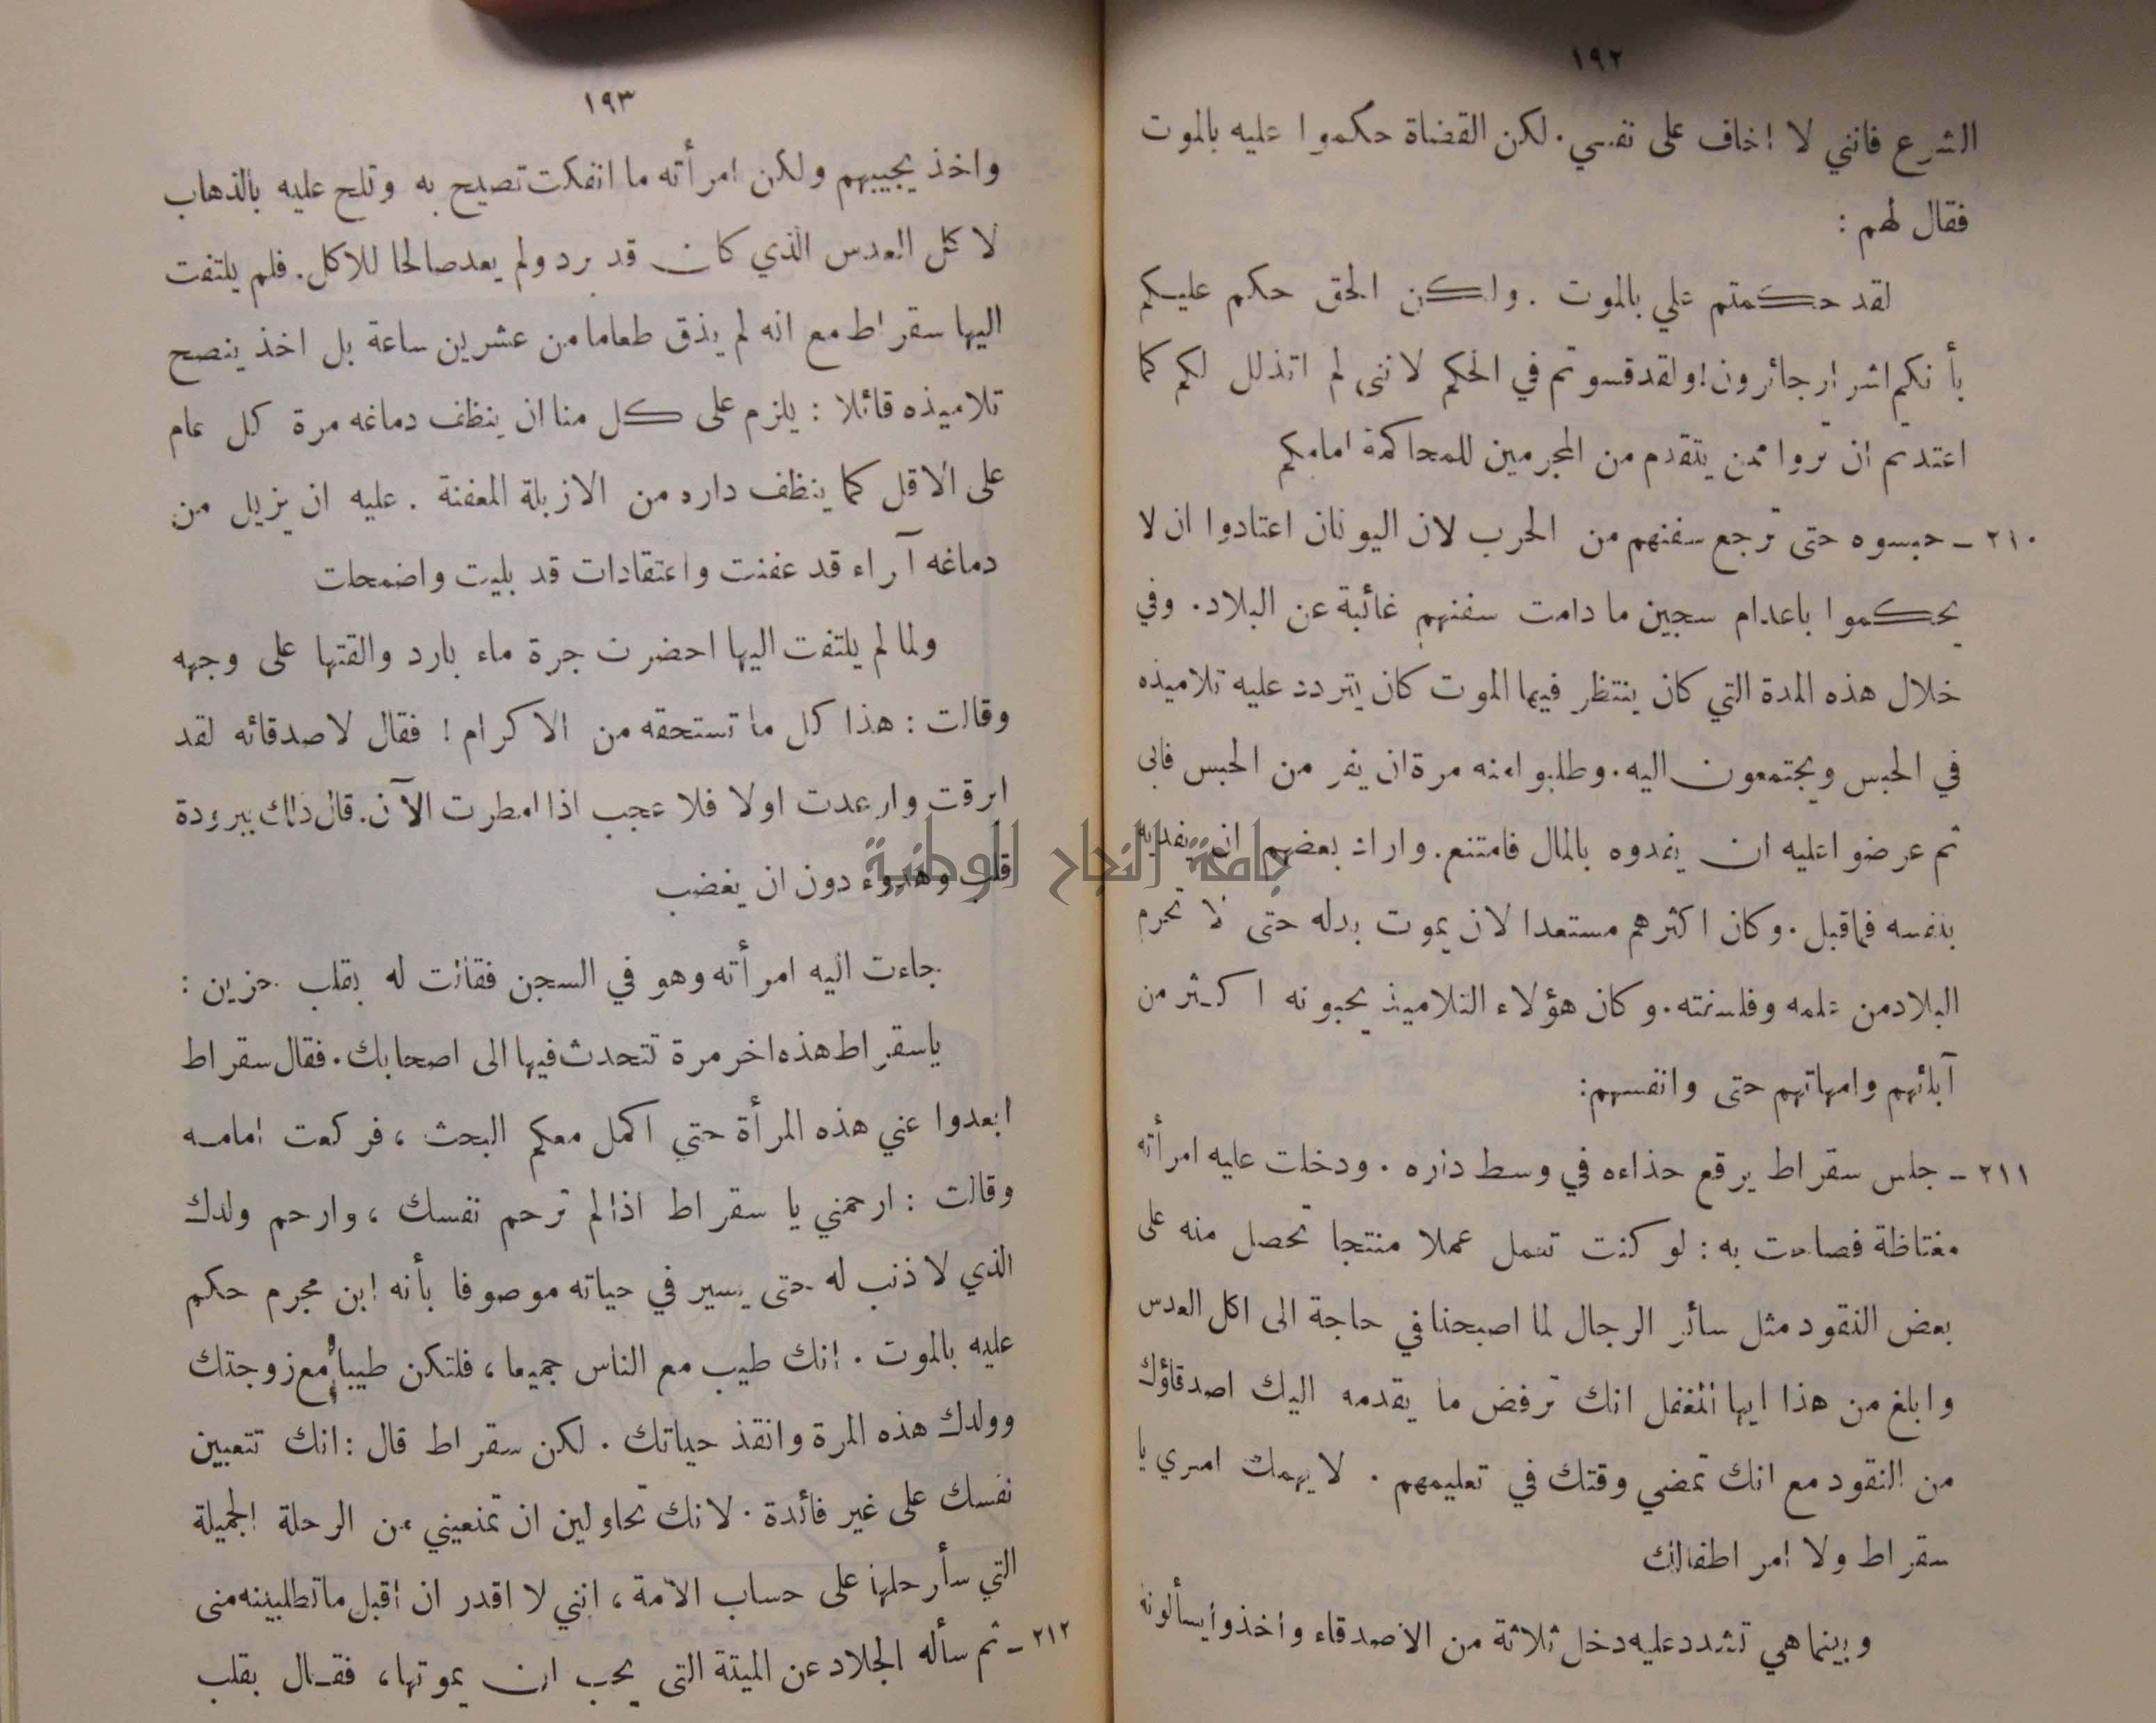 ١٩٢
الشرع فانني لا اخاف على نفسي. لكن القضاة حكموا عليه بالموت
فقال لهم :
لقد حكمتم علي بالموت . ولكن الحق حكم عليكم
بأنكم اشرار جائرون! ولقد قسوتم في الحكم لانني لم اتذلل لكم كما
اعتدتم ان تروا ممن يتقدم من المجرمين للمحاكمة امامكم
٢١٠ ـ حبسوه حتى ترجع سفنهم من الحرب لان اليونان اعتادوا ان لا
يحكموا باعدام سجين ما دامت سفنهم غائبة عن البلاد. وفي
خلال هذه المدة التي كان ينتظر فيها الموت كان يتردد عليه تلاميذه
في الحبس ويجتمعون اليه. وطلبوا منه مرة ان يفر من الحبس فابى
ثم عرضوا عليه ان يفدوه بالمال فامتنع. واراد بعضهم ان يفديه
بنفسه فما قبل. وكان اكثرهم مستعدا لان يموت بدله حتى لا تحرم
البلاد من علمه وفلسفته. وكان هؤلاء التلاميذ يحبونه اكثر من
آبائهم وامهاتهم حتى وانفسهم:
٢١١ ـ جلس سقراط يرقع حذاءه في وسط داره . ودخلت عليه امرأته
مغتاظة فصاحت به : لو كنت تعمل عملا منتجا تحصل منه على
بعض النقود مثل سائر الرجال لما اصبحنا في حاجة الى اكل العدس
وابلغ من هذا ايها المغفل انك ترفض ما يقدمه اليك اصدقاؤك
من النقود مع انك تمضي وقتك في تعليمهم . لا يهمك امري يا
سقراط ولا امر اطفالك
وبينما هي تشدد عليه دخل ثلاثة من الاصدقاء وأخذوا يسألونه
١٩٣
واخذ يجيبهم ولكن امرأته ما انفكت تصيح به وتلح عليه بالذهاب
لاكل العدس الذي كان قد برد ولم يعد صالحا للاكل. فلم يلتفت
اليها سقراط مع انه لم يذق طعاما من عشرين ساعة بل اخذ ينصح
تلاميذه قائلا : يلزم على كل منا ان ينظف دماغه مرة كل عام
على الاقل كما ينظف داره من الازبلة المعفنة . عليه ان يزيل من
دماغه آراء قد عفنت واعتقادات قد بليت واضمحلت
ولما لم يلتفت اليها احضرت جرة ماء بارد والقتها على وجهه
وقالت : هذا كل ما تستحقه من الاكرام ! فقال لاصدقائه لقد
ابرقت وارعدت اولا فلا عجب اذا امطرت الآن. قال ذلك ببرودة
قلب وهدوء دون ان يغضب
جامعة النجاح الوطنية
جاءت اليه امرأته وهو في السجن فقالت له بقلب حزين :
ياسقراط هذه اخر مرة تتحدث فيها الى اصحابك. فقال سقراط
ابعدوا عني هذه المرأة حتى اكمل معكم البحث ، فركعت امامه
وقالت : ارحمني يا سقراط اذا لم ترحم نفسك ، وارحم ولدك
الذي لا ذنب له حتى يسير في حياته موصوفا بأنه ابن مجرم حكم
عليه بالموت . انك طيب مع الناس جميعا ، فلتكن طيبا مع زوجتك
وولدك هذه المرة وانقذ حياتك . لكن سقراط قال : انك تتعبين
نفسك على غير فائدة . لانك تحاولين ان تمنعيني من الرحلة الجميلة
التي سأرحلها على حساب الامة ، انني لا اقدر ان اقبل ما تطلبينه منى
٢١٢ ـ ثم سأله الجلاد عن الميتة التى يحب ان يموتها ، فقال بقلب